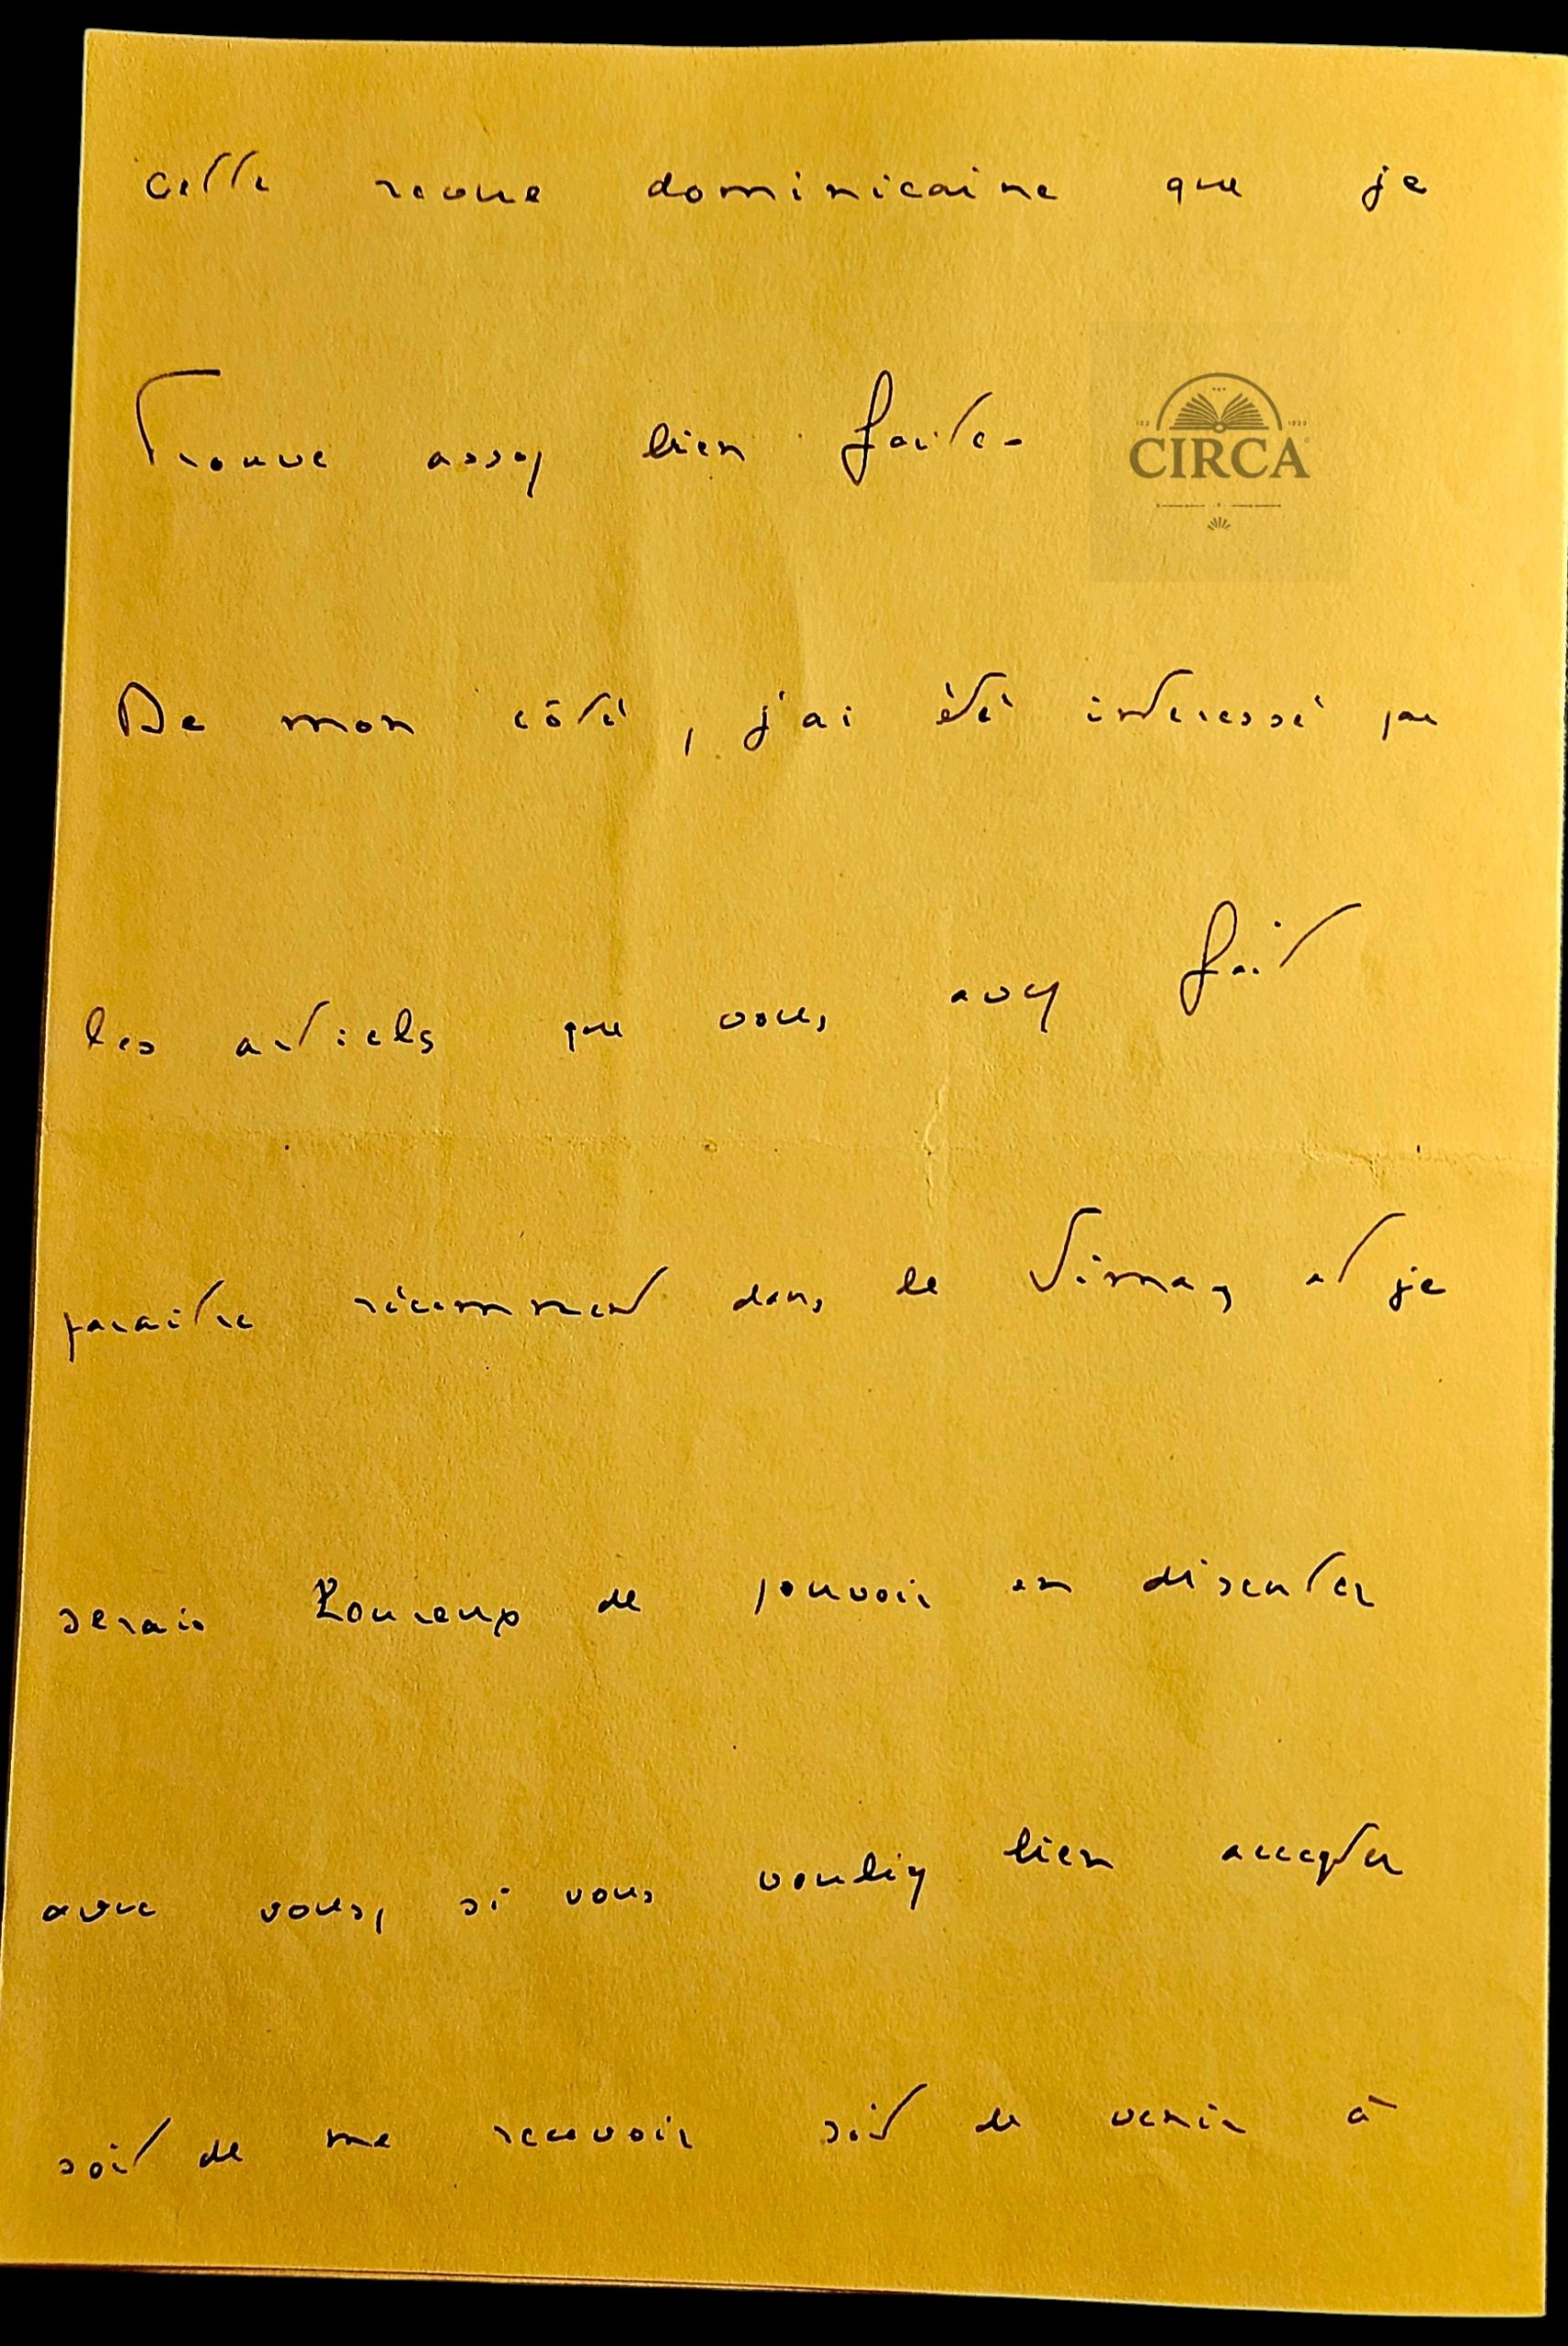 cette revue dominicaine que je
Trouve assez bien faite -
CIRCA
De mon côté, j'ai été interessé par
les articles que vous avez fait
paraitre récemment dans le et je
serais heureux de pouvoir en discuter
avec vous, si vous vouliez bien accepter
soit de me recevoir soit de venir à